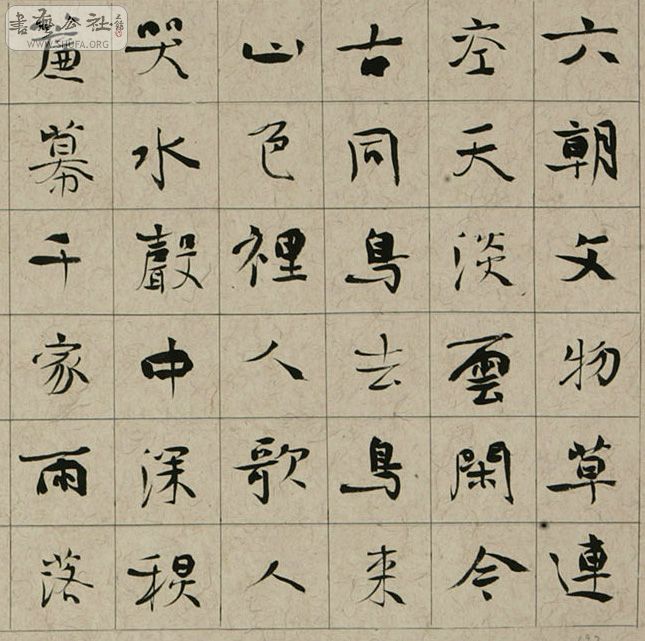 書藝公社
WWW.SHUFA.ORG
六朝文物草連
空天淡雲閑今
古同鳥去鳥來
山色裡人歌人
哭水聲中深
簾幕千家雨落